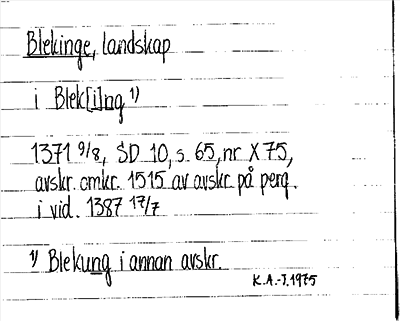 Blekinge, landskap
i Blek[i]ng 1)
1371 9/8, SD 10, s. 65, nr X 75,
avskr. omkr. 1515 av avskr. på perg.
i vid. 1387 17/7
1) Blekung i annan avskr.
K.A.-J. 1975